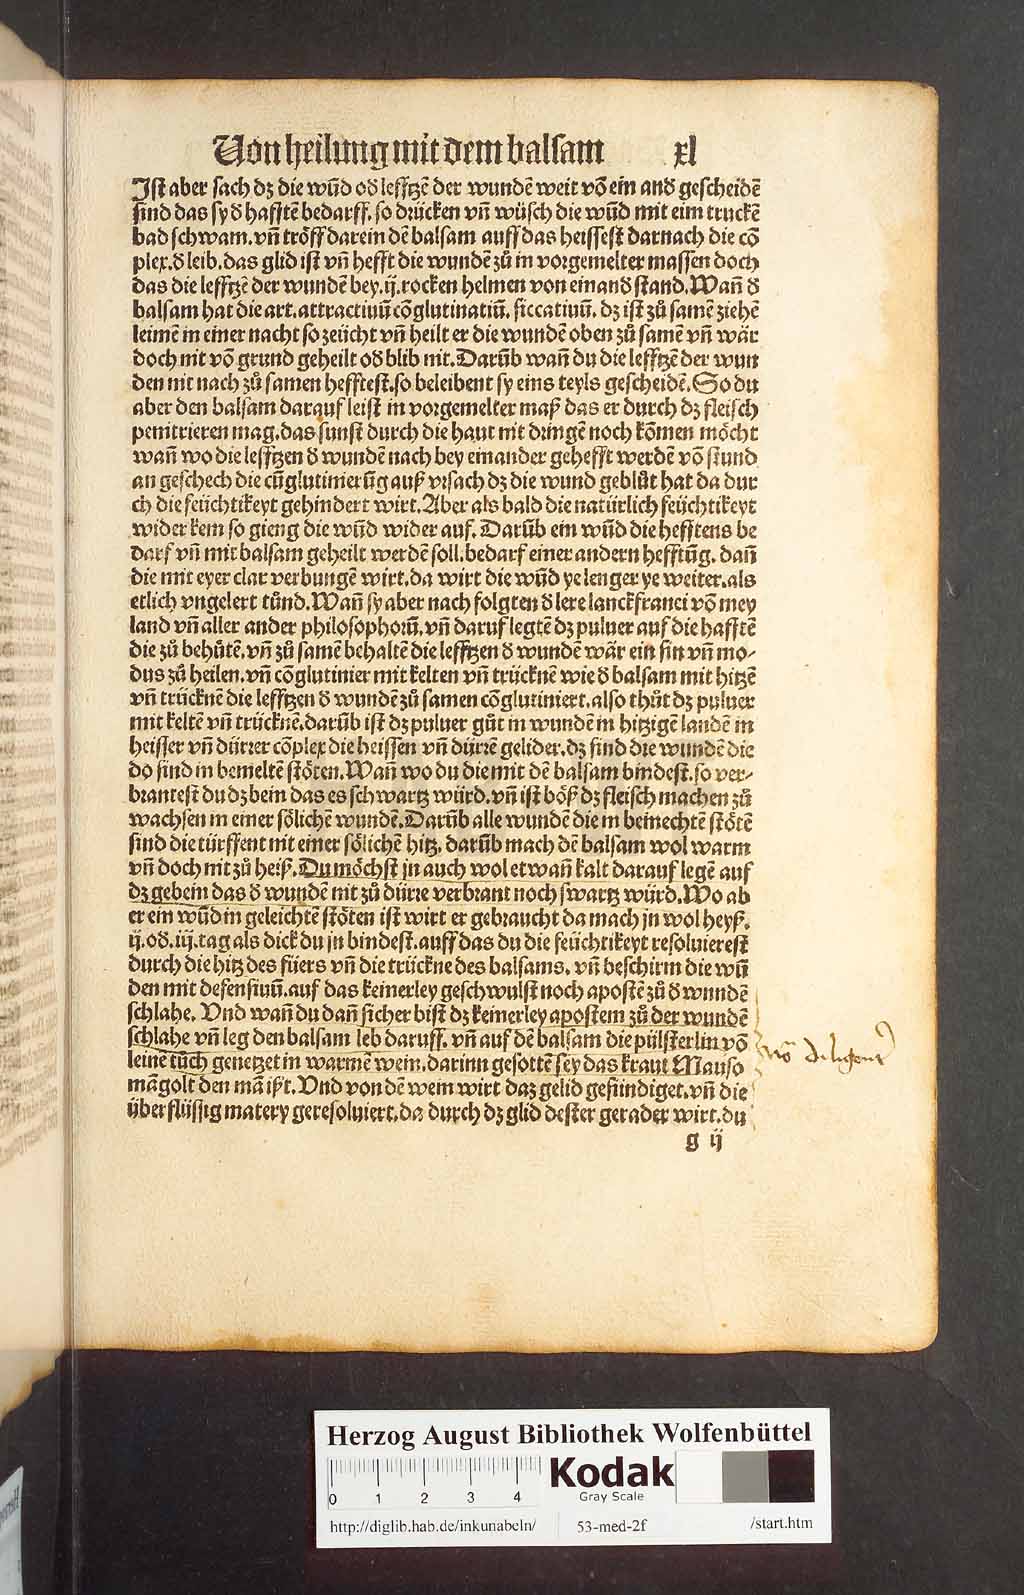 Von heilung mit dem balsam xl
Ist aber sach dz die wūd od̕ lefftzē der wundē weit vō ein and̕ gescheidē
sind das sy d̕ hafftē bedarff. so drücken vn̄ wüsch die wūd mit eim truckē
bad schwam. vn̄ tröff darein dē balsam auff das heissest darnach die cō
plex. d̕ leib. das glid ist vn̄ hefft die wundē zů in vorgemelter massen doch
das die lefftzē der wundē bey. ij. rocken helmen von einand̕ stand. Wan̄ d̕
balsam hat die art. attractiuū cōglutinatiū. siccatiuū. dz ist zů samē ziehē
leimē in einer nacht so zeücht vn̄ heilt er die wundē oben zů samē vn̄ wär
doch nit vō grund geheilt od̕ blib nit. Darūb wan̄ du die lefftzē der wun
den nit nach zů samen hefftest. so beleibent sy eins teyls gescheidē. So du
aber den balsam darauf leist in vorgemelter maß das er durch dz fleisch
penitrieren mag. das sunst durch die haut nit dringē noch kōmen möcht
wan̄ wo die lefftzen d̕ wundē nach bey einander gehefft werdē vō stund
an geschech die cūglutinierūg auß vrsach dz die wund geblůt hat da dur
ch die feüchtikeyt gehindert wirt. Aber als bald die natürlich feüchtikeyt
wider kem so gieng die wūd wider auf. Darūb ein wūd die hefftens be
darf vn̄ mit balsam geheilt werdē soll. bedarf einer andern hefftūg. dan̄
die mit eyer clar verbungē wirt. da wirt die wūd ye lenger ye weiter. als
etlich vngelert tůnd. Wan̄ sy aber nach folgten d̕ lere lanckfranci vō mey
land vn̄ aller ander philosophorū. vn̄ daruf legtē dz puluer auf die hafftē
die zů behůtē. vn̄ zů samē behaltē die lefftzen d̕ wundē wär ein sin vn̄ mo-
dus zů heilen. vn̄ cōglutinier mit kelten vn̄ trücknē wie d̕ balsam mit hitzē
vn̄ trücknē die lefftzen d̕ wundē zů samen cōglutiniert. also thůt dz puluer
mit keltē vn̄ trücknē. darūb ist dz puluer gůt in wundē in hitzigē landē in
heisser vn̄ dürrer cōplex die heissen vn̄ dürrē gelider. dz sind die wundē die
do sind in bemeltē stötē. Wan̄ wo du die mit dē balsam bindest. so ver-
brantest du dz bein das es schwartz würd. vn̄ ist böß dz fleisch machen zů
wachsen in einer sölichē wundē. Darūb alle wundē die in beinechtē stötē
sind die türffent nit einer sölichē hitz. darūb mach dē balsam wol warm
vn̄ doch nit zů heiß. Du möchst jn auch wol etwan̄ kalt darauf legē auf
dz gebein das d̕ wundē nit zů dürre verbrant noch swartz würd. Wo ab
er ein wūd in geleichtē stötē ist wirt er gebraucht da mach jn wol heyß.
ij. od̕. iij. tag als dick du jn bindest. auff das du die feüchtikeyt resoluierest
durch die hitz des füers vn̄ die trückne des balsams. vn̄ beschirm die wū
den mit defensiuū. auf das keinerley geschwulst noch apostē zů d̕ wundē
schlahe. Vnd wan̄ du dan̄ sicher bist dz keinerley apostem zů der wundē
schlahe vn̄ leg den balsam leb daruff. vn̄ auf dē balsam die pülsterlin vō
leinē tůch genetzet in warmē wein. darinn gesottē sey das kraut Mauso
māgolt den mā ißt. Vnd von dē wein wirt daz gelid gesündiget. vn̄ die
überflüssig matery geresoluiert. da durch dz glid dester gerader wirt. du
g ij
Herzog August Bibliothek Wolfenbüttel
0 1 2 3 4
Kodak
Gray Scale
http://diglib.hab.de/inkunabeln/ 53-med-2f /start.htm